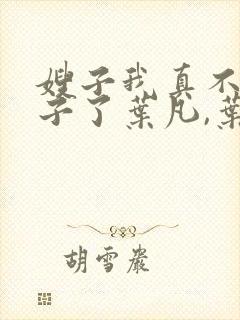 嫂子我真不
子了葉凡,葉
胡雪巖